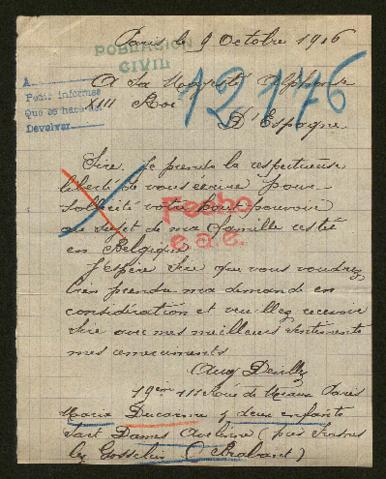 Paris le 9 Octobre 1916
POBLACIÓN
CIVIL
A
Pedir informes
Que se haga
Devolver
12176
A Sa Majesté Alphonse
XIII Roi
D'Espagne
Sire, je prends la respectueuse
liberté de vous écrire pour
sollicité votre haut pouvoir
au sujet de ma famille restée
en Belgique
Fecho
e.a.e.
J'espère Sire que vous voudrez
bien prendre ma demande en
considération et veuillez recevoir
Sire avec mes meilleurs sentiments
mes remerciments
19em 111 Rue de Meaux Paris
Maria y deux enfants
Sart Dames Avelines (près Frasnes
lez Gosselies (Brabant)